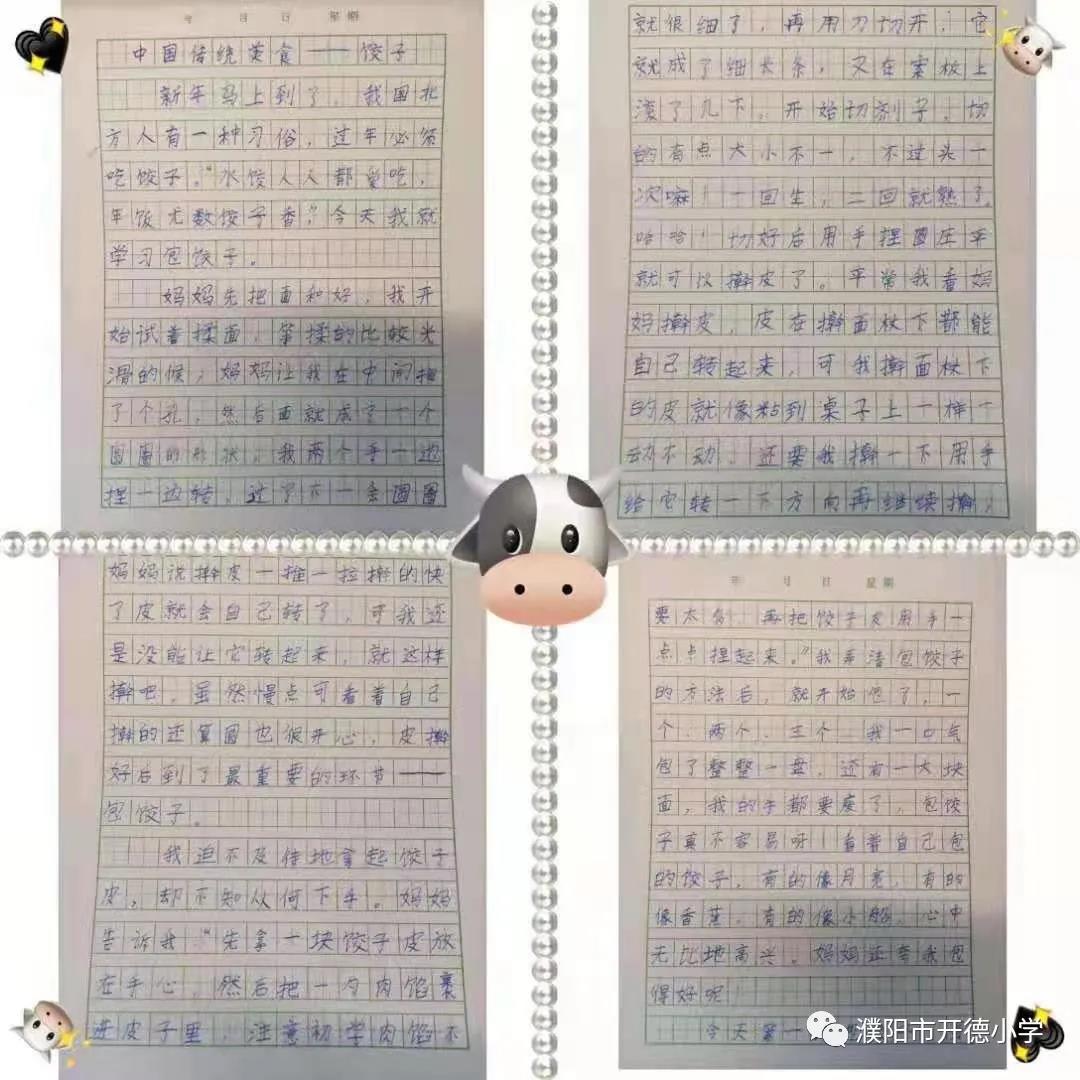 年 月 日 星期
中国传统美食——饺子
新年马上到了，我国北
方人有一种习俗，过年必须
吃饺子。“水饺人人都爱吃，
年饭尤数饺子香”今天我就
学习包饺子。
妈妈先把面和好，我开
始试着揉面，等揉的比较光
滑的候，妈妈让我在中间
了个孔，然后面就成了一个
圆圈的形状，我两个手一边
捏一边转，过了不一会圆圈
就很细了，再用刀切开，它
就成了细长条，又在案板上
滚了几下，开始切剂子，切
的有点大小不一，不过头一
次嘛！一回生，二回就熟了。
哈哈！切好后用手捏圆压平
就可以擀皮了。平常我看妈
妈擀皮，皮在擀面杖下都能
自己转起来，可我擀面杖下
的皮就像粘到桌子上一样一
动不动，还要我擀一下用手
给它转一下方向再继续擀，
妈妈说擀皮一推一拉擀的快
了皮就会自己转了，可我还
是没能让它转起来，就这样
擀吧，虽然慢点可看着自己
擀的还算圆也很开心，皮擀
好后到了最重要的环节——
包饺子。
我迫不及待地拿起饺子
皮，却不知从何下手。妈妈
告诉我“先拿一块饺子皮放
在手心，然后把一勺肉馅裹
进皮子里，注意初学肉馅不
年 月 日 星期
要太多，再把饺子皮用手一
点点捏起来。”我弄清包饺子
的方法后，就开始包了，一
个、两个、三个，我一口气
包了整整一盘，还有一大块
面，我的手都要废了，包饺
子真不容易呀！看着自己包
的饺子，有的像月亮，有的
像香蕉，有的像小船，心中
无比地高兴。妈妈还夸我包
得好呢！
今天第一
濮阳市开德小学